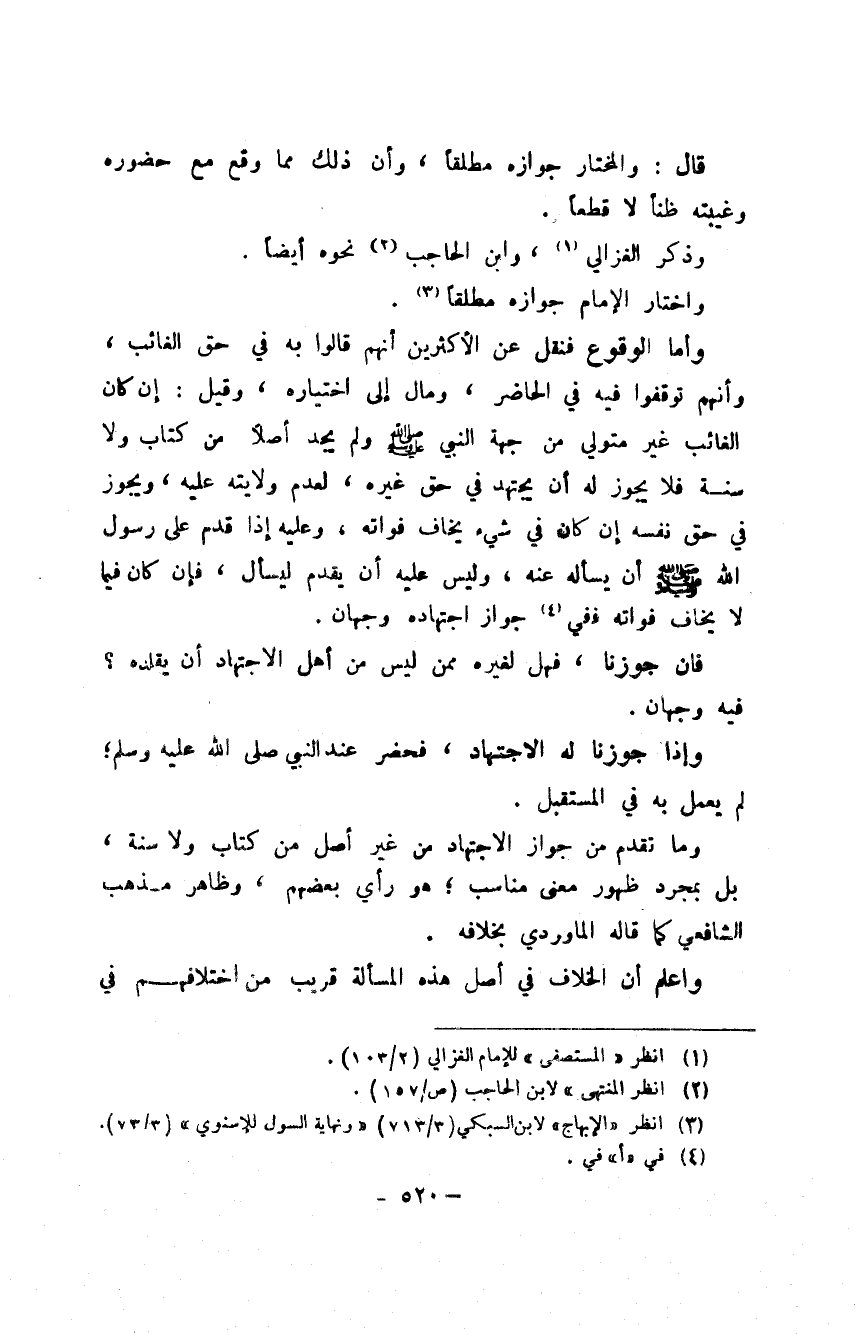 قال : والمختار جوازه مطلقاً ، وأن ذلك مما وقع مع حضوره
وغيبته ظناً لا قطعاً .
وذكر الغزالي (١) ، وابن الحاجب (٢) نحوه أيضاً .
واختار الإمام جوازه مطلقاً (٣) .
وأما الوقوع فنقل عن الأكثرين أنهم قالوا به في حق الغائب ،
وأنهم توقفوا فيه في الحاضر ، ومال إلى اختياره ، وقيل : إن كان
الغائب غير متولي من جهة النبي ﷺ ولم يجد أصلاً من كتاب ولا
سنة فلا يجوز له أن يجتهد في حق غيره ، لعدم ولايته عليه ، ويجوز
في حق نفسه إن كان في شيء يخاف فواته ، وعليه إذا قدم على رسول
الله ﷺ أن يسأله عنه ، وليس عليه أن يقدم ليسأل ، فإن كان فيما
لا يخاف فواته ففي (٤) جواز اجتهاده وجهان .
فان جوزنا ، فهل لغيره ممن ليس من أهل الاجتهاد أن يقلده ؟
فيه وجهان .
وإذا جوزنا له الاجتهاد ، فحضر عند النبي صلى الله عليه وسلم؛
لم يعمل به في المستقبل .
وما تقدم من جواز الاجتهاد من غير أصل من كتاب ولا سنة ،
بل بمجرد ظهور معنى مناسب ؛ هو رأي بعضهم ، وظاهر مذهب
الشافعي كما قاله الماوردي بخلافه .
واعلم أن الخلاف في أصل هذه المسألة قريب من اختلافهم في
(١) انظر « المستصفى » للإمام الغزالي (١٠٣/٢) .
(٢) انظر المنتهى » لابن الحاجب (ص/١٥٧) .
(٣) انظر «الإبهاج» لابن السبكي (٧١٣/٣) « ونهاية السول للإسنوي » (٧٣/٣).
(٤) في «أ» في .
— ٥٢٠ -